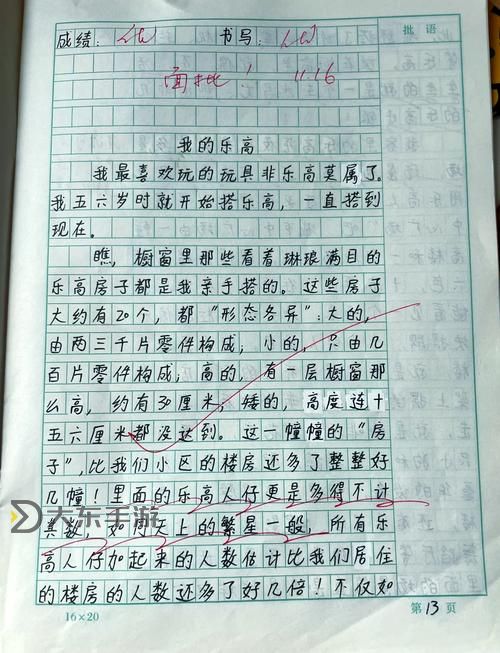 成绩： 书写： 批语
面批！ 11.16
我的乐高
我最喜欢玩的玩具非乐高莫属了。
我五六岁时就开始搭乐高，一直搭到
现在。
瞧，橱窗里那些看着琳琅满目的
乐高房子都是我亲手搭的。这些房子
大约有20个，都“形态各异”：大的，
由两三千片零件构成；小的，只由几
百片零件构成；高的，有一层橱窗那
么高，约有30厘米，矮的，高度连十
五六厘米都没达到。这一幢幢的“房
子”，比我们小区的楼房还多了整整好
几幢！里面的乐高人仔更是多得不计
其数，如同天上的繁星一般，所有乐
高人仔加起来的人数估计比我们居住
的楼房的人数还多了好几倍！不仅如
16×20 第13页
大东手游